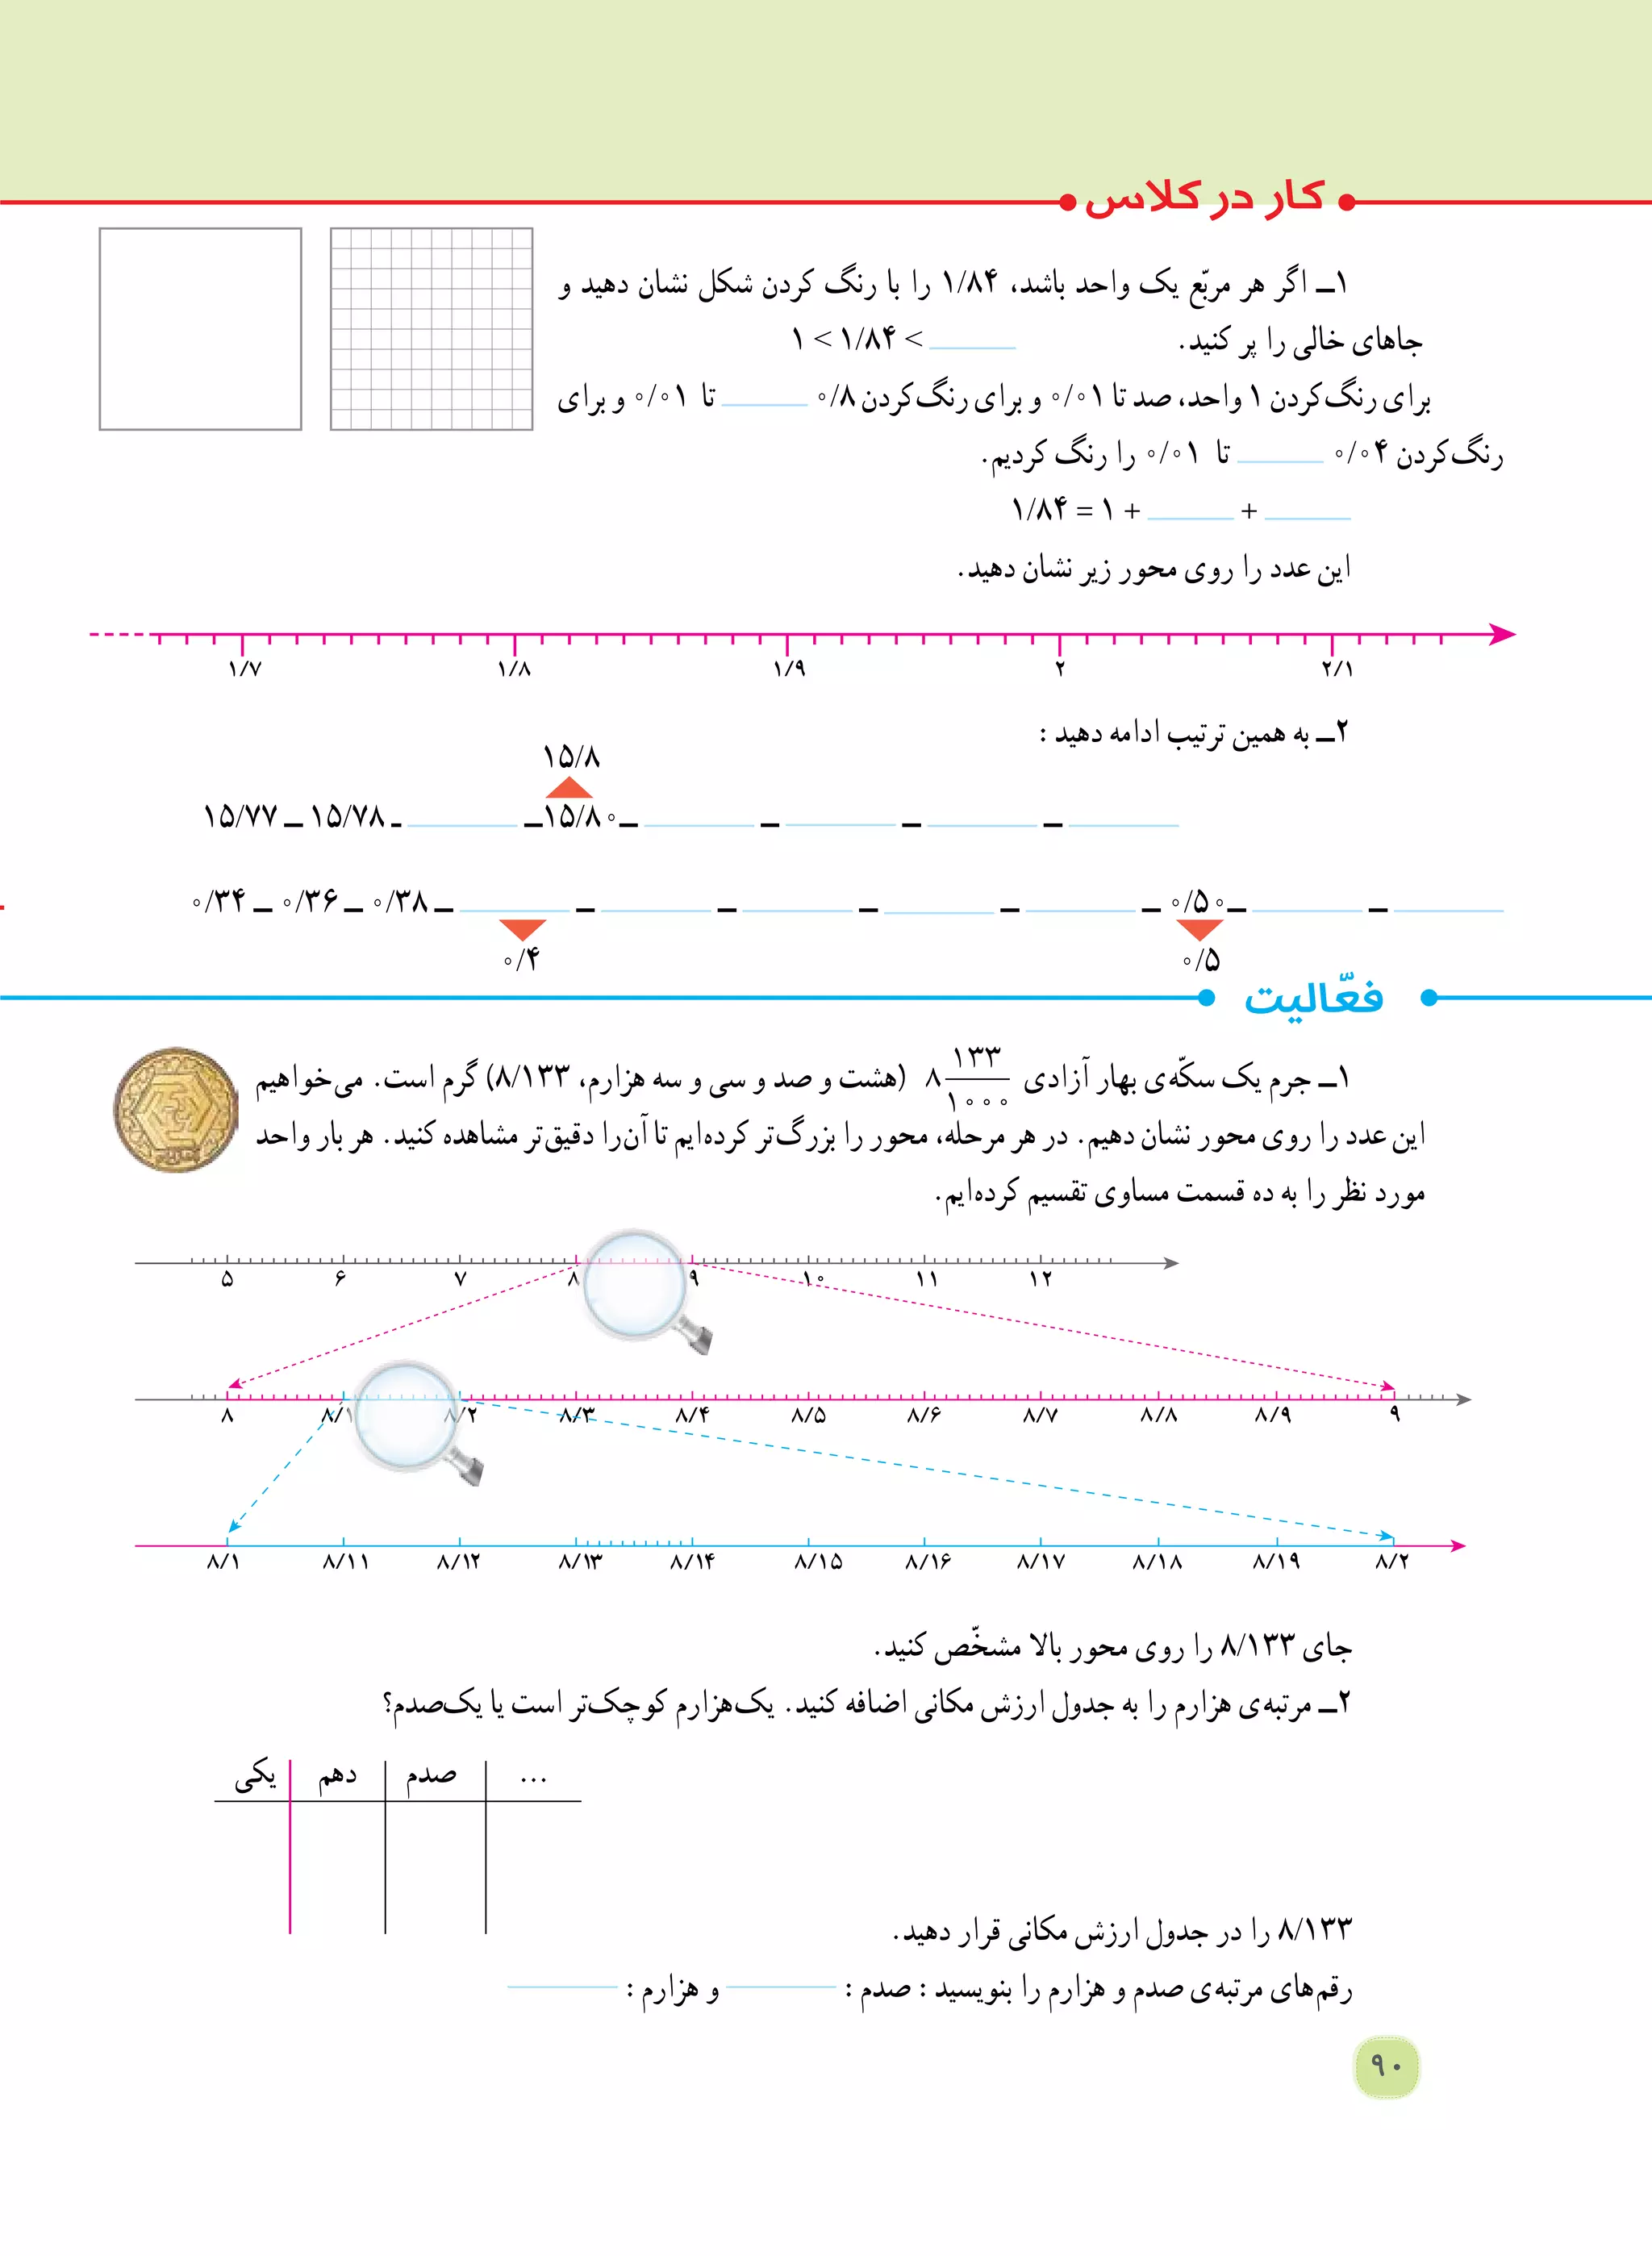 کار در کلاس
۱ــ اگر هر مربّع یک واحد باشد، ۱/۸۴ را با رنگ کردن شکل نشان دهید و
جاهای خالی را پر کنید. ۱ < ۱/۸۴ <
برای رنگ‌کردن ۱ واحد، صد تا ۰/۰۱ و برای رنگ‌کردن ۰/۸ تا ۰/۰۱ و برای
رنگ‌کردن ۰/۰۴ تا ۰/۰۱ را رنگ کردیم.
۱/۸۴ = ۱ + +
این عدد را روی محور زیر نشان دهید.
۱/۷ ۱/۸ ۱/۹ ۲ ۲/۱
۲ــ به همین ترتیب ادامه دهید :
۱۵/۸
۱۵/۷۷ ــ ۱۵/۷۸ ـ ــ ۱۵/۸۰ ــ ــ ــ ــ
۰/۳۴ ــ ۰/۳۶ ــ ۰/۳۸ ــ ــ ــ ــ ــ ــ ۰/۵۰ ــ ــ
۰/۴ ۰/۵
فعّالیت
۱ــ جرم یک سکّه‌ی بهار آزادی ۸ ۱۳۳/۱۰۰۰ (هشت و صد و سی و سه هزارم، ۸/۱۳۳) گرم است. می‌خواهیم
این عدد را روی محور نشان دهیم. در هر مرحله، محور را بزرگ‌تر کرده‌ایم تا آن‌را دقیق‌تر مشاهده کنید. هر بار واحد
مورد نظر را به ده قسمت مساوی تقسیم کرده‌ایم.
۵ ۶ ۷ ۸ ۹ ۱۰ ۱۱ ۱۲
۸ ۸/۱ ۸/۲ ۸/۳ ۸/۴ ۸/۵ ۸/۶ ۸/۷ ۸/۸ ۸/۹ ۹
۸/۱ ۸/۱۱ ۸/۱۲ ۸/۱۳ ۸/۱۴ ۸/۱۵ ۸/۱۶ ۸/۱۷ ۸/۱۸ ۸/۱۹ ۸/۲
جای ۸/۱۳۳ را روی محور بالا مشخّص کنید.
۲ــ مرتبه‌ی هزارم را به جدول ارزش مکانی اضافه کنید. یک‌هزارم کوچک‌تر است یا یک‌صدم؟
یکی دهم صدم ...
۸/۱۳۳ را در جدول ارزش مکانی قرار دهید.
رقم‌های مرتبه‌ی صدم و هزارم را بنویسید : صدم : و هزارم :
۹۰